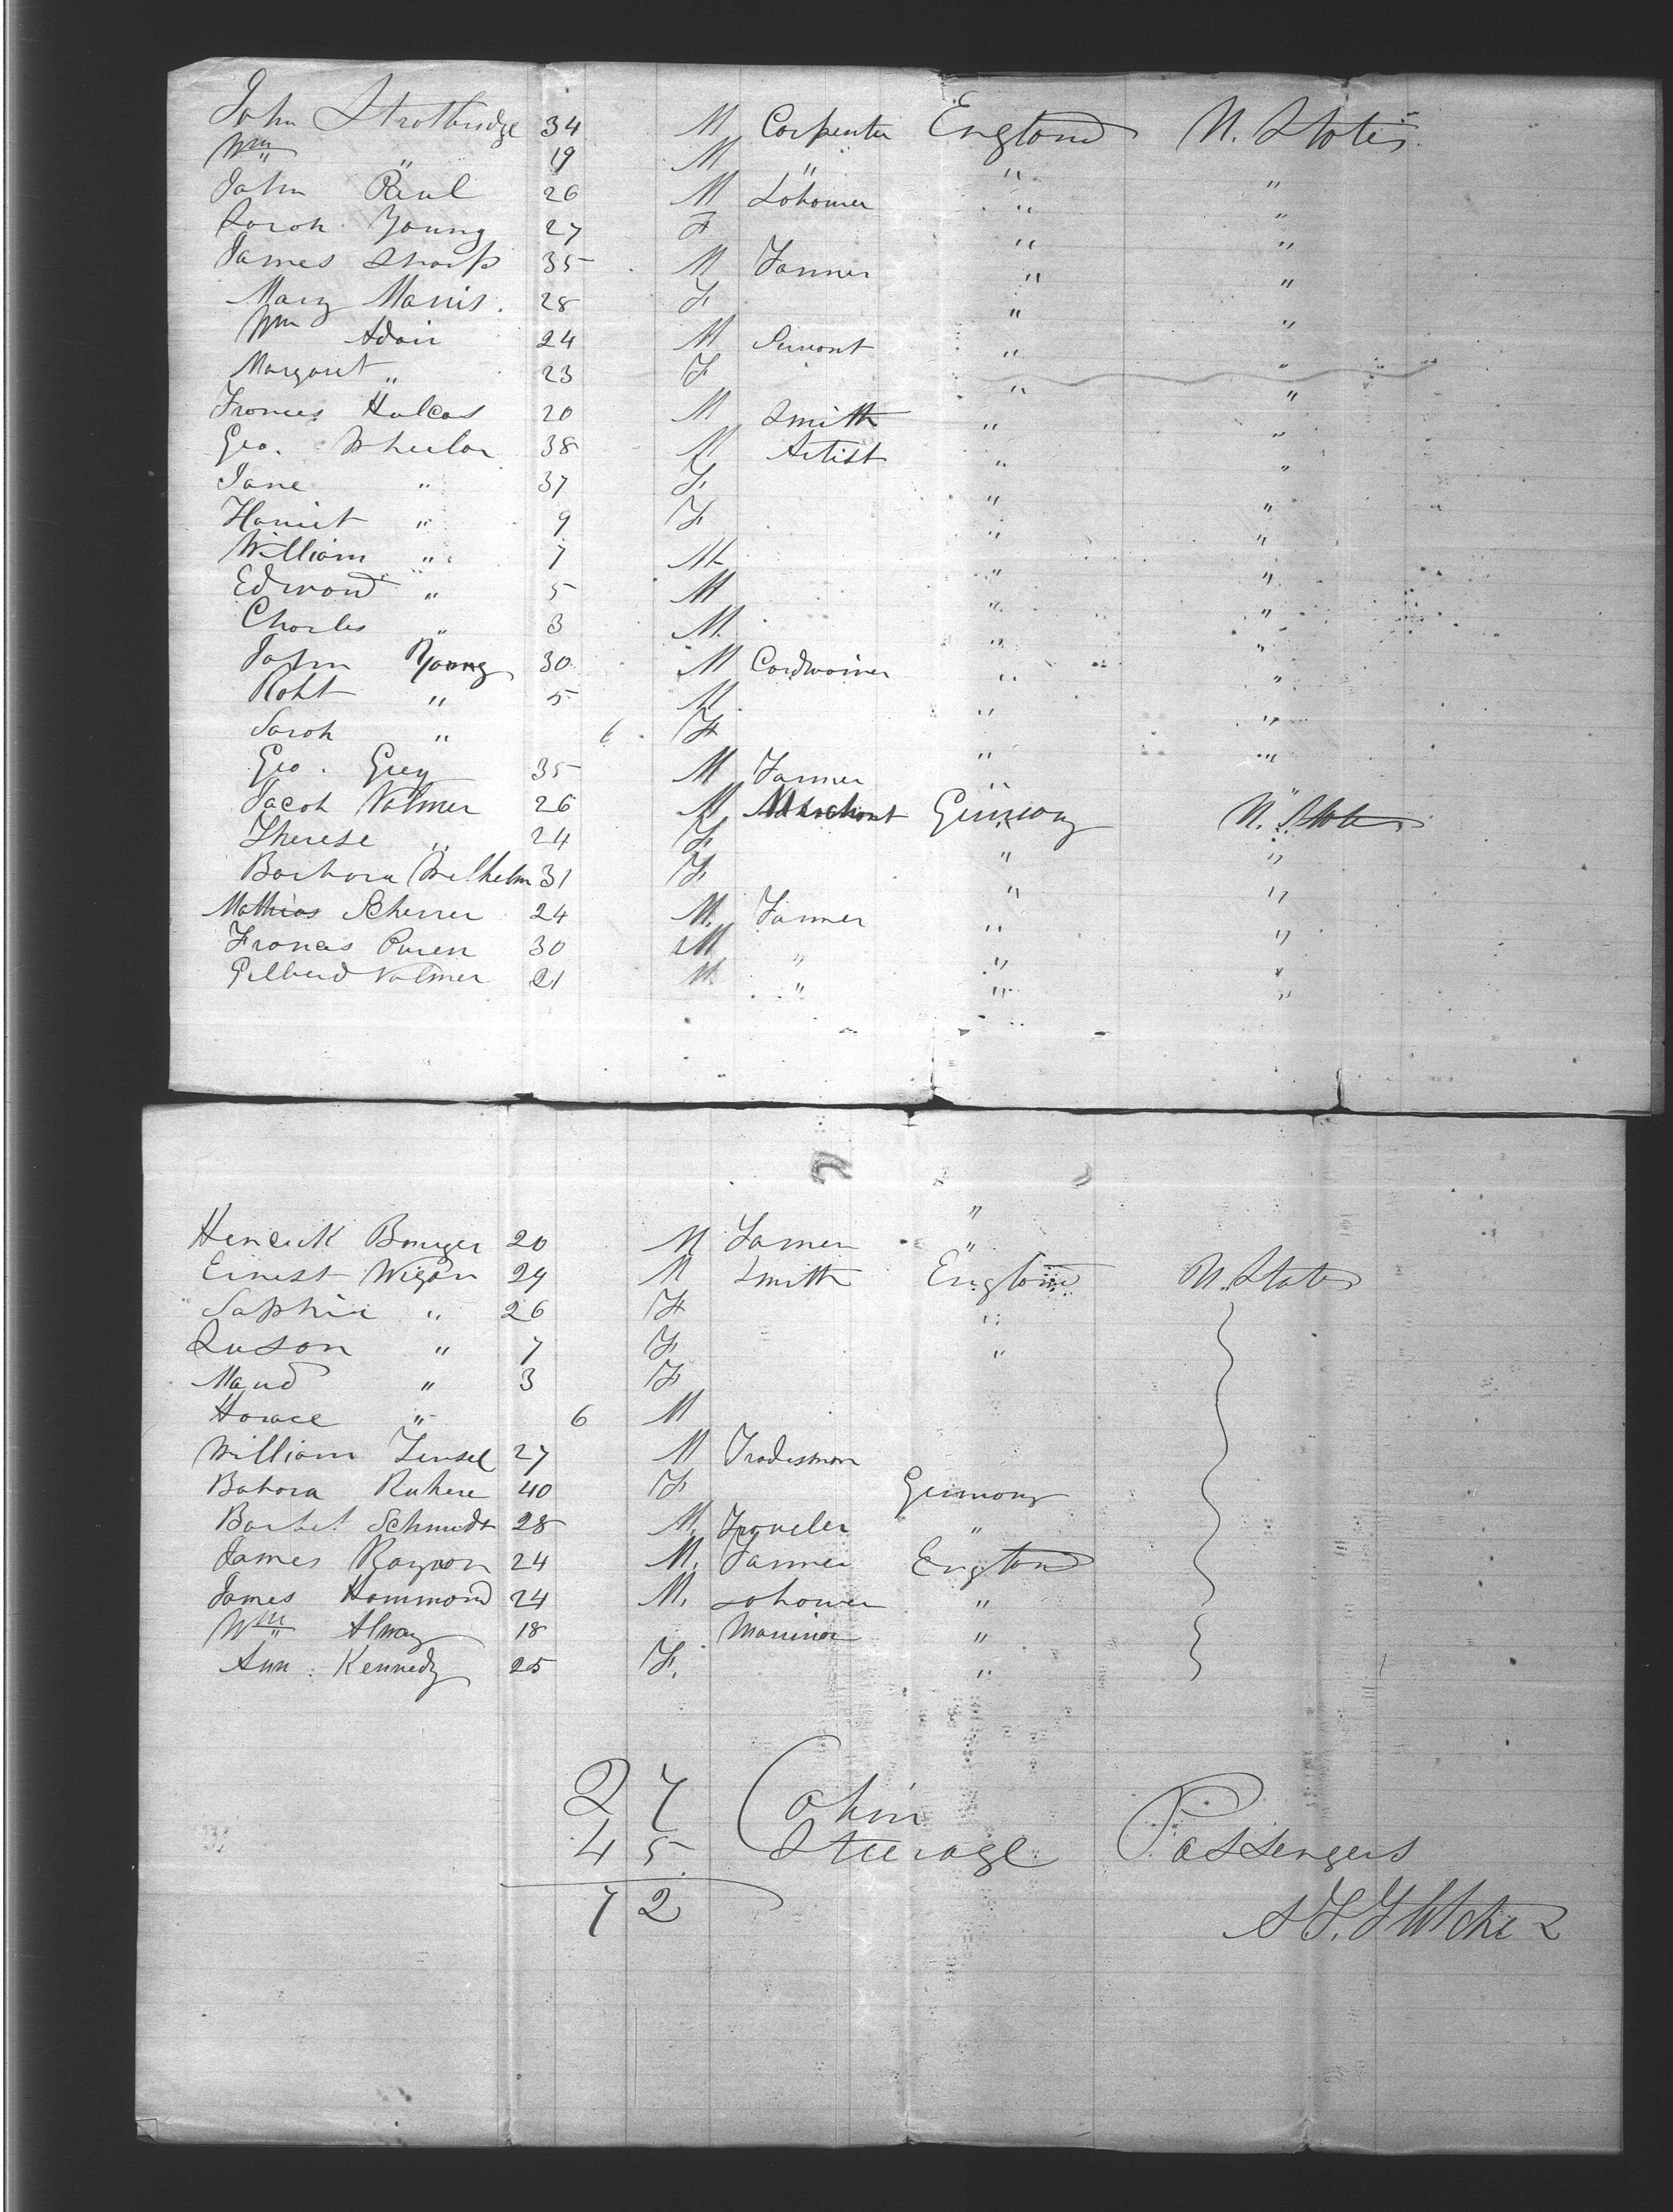 John Strotbridge 34 M Carpenter England U. States
Wm " 19 M " " "
John Reul 26 M Labourer " "
Sarah Young 27 F " "
James Sharp 35 M Farmer " "
Mary Marris 28 F " "
Wm Adair 24 M Servant " "
Margaret " 23 F " "
Frances Hulcas 20 M Smith " "
Geo. Wheelar 38 M Artist " "
Jane " 37 F " "
Harriet " 9 F " "
William " 7 M " "
Edward " 5 M " "
Charles " 3 M. " "
John Young 30 M Cordwainer " "
Robt " 5 M " "
Sarah " 6 F " "
Geo. Grey 35 M Farmer " "
Jacob Volmer 26 M Merchant Germany U. States
Therese " 24 F " "
Barbara Wilhelm 31 F " "
Mathias Scherrer 24 M. Farmer " "
Francis Puren 30 M " " "
Gilberd Volmer 21 M. " " "
"
Henrick Bmeger 20 M Farmer "
Ernest Wigan 29 M Smith England U. States
Saphia " 26 F "
Suson " 7 F "
Maud " 3 F
Horace " 6 M
William Zensel 27 M Tradesman
Babora Ruhere 40 F Germany
Barbet Schmidt 28 M. Traveler "
James Raywon 24 M. Farmer England
James Hammond 24 M. Labourer "
Wm Alway 18 Marinor "
Ann Kennedy 25 F. "
27 Cabin
45 Steerage Passengers
72